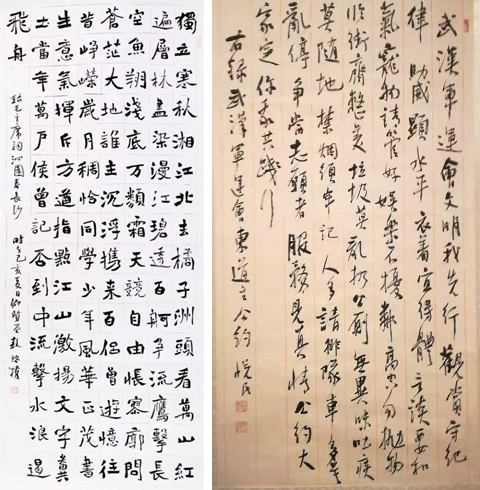 獨立寒秋湘江北去橘子洲頭看萬山紅
遍層林盡染漫江碧透百舸爭流鷹擊長
空魚翔淺底萬類霜天競自由悵寥廓問
蒼茫大地誰主沉浮攜來百侶曾遊憶往
昔崢嶸歲月稠恰同學少年風華正茂書
生意氣揮斥方遒指點江山激揚文字糞
土當年萬戶侯曾記否到中流擊水浪遏
飛舟
毛主席詞沁園春長沙 己亥夏日
武漢軍運會文明我先行觀賽守紀
律助威顯水平衣着宜得體言談要和
氣寵物請管好娛樂不擾鄰高空勿拋物
臨街齊整美垃圾莫亂扔公厠無異味吐痰
莫隨地禁煙須牢記人多請排隊車多莫
亂停爭當志願者服務見真情公約大
家定你我共踐行
右錄武漢軍運會東道主公約 悅民